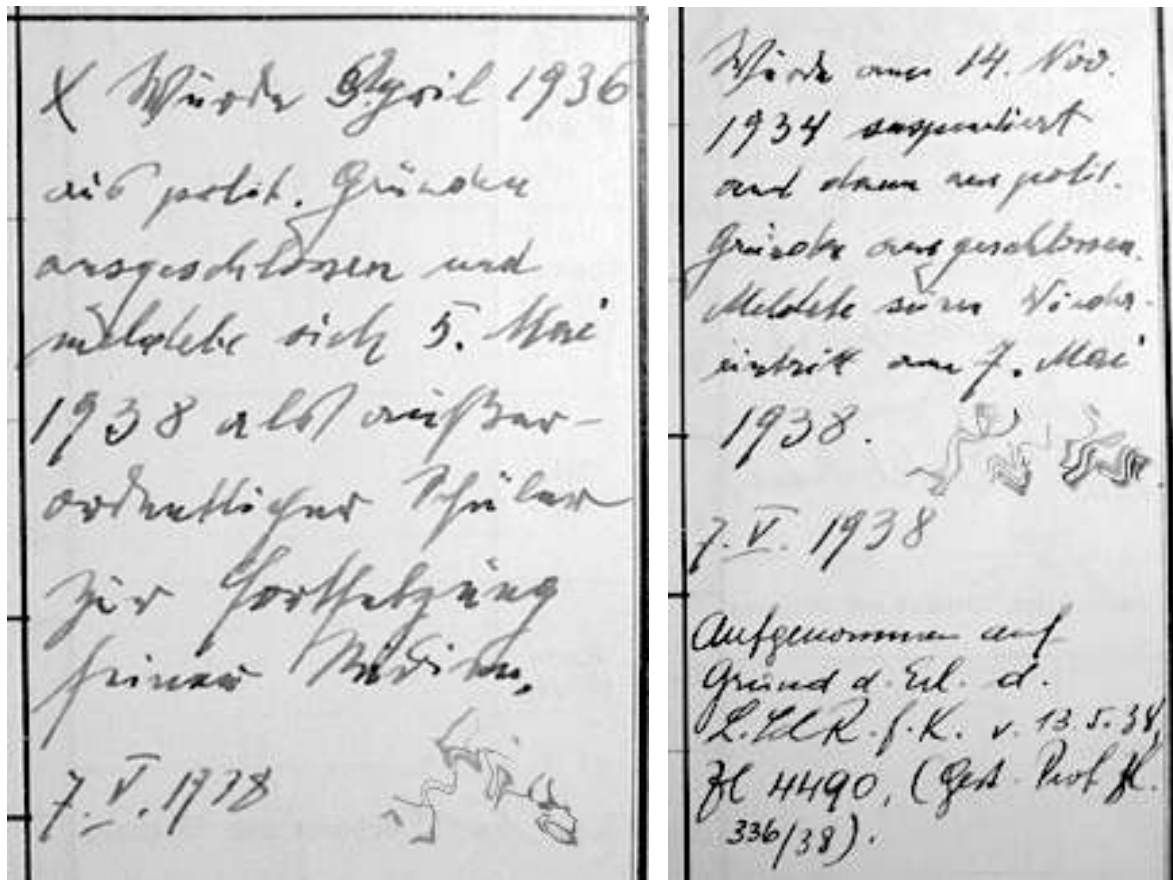 X Wurde April 1936
aus polit. Gründen
ausgeschlossen und
meldete sich 5. Mai
1938 als außer-
ordentlicher Schüler
zur Fortsetzung
seiner Studien.
7. V. 1938
Wurde am 14. Nov.
1934 suspendiert
und dann aus polit.
Gründen ausgeschlossen.
Meldete seinen Wieder-
eintritt am 7. Mai
1938.
7. V. 1938
Aufgenommen auf
Grund d. Erl. d.
L. Sch R. f. K. v. 13.5.38,
Zl 4490, (Gest. Prot Zl.
336/38).